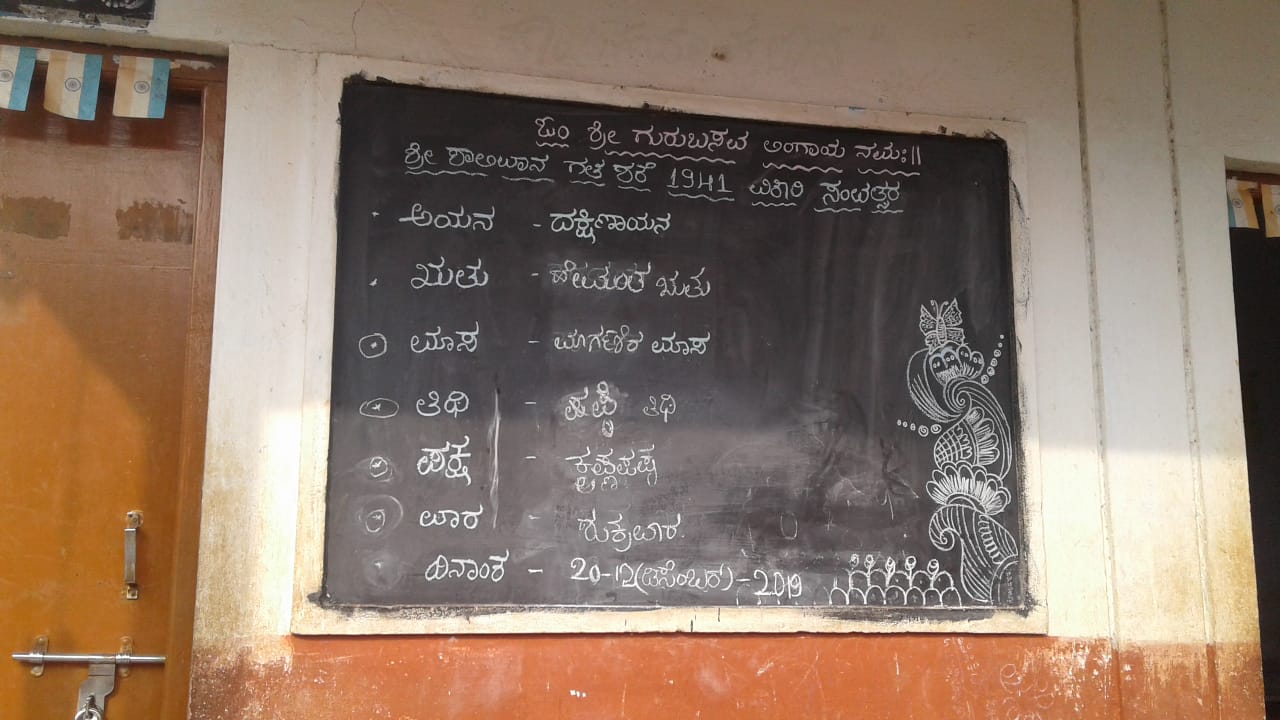 ಓಂ ಶ್ರೀ ಗುರುಬಸವ ಲಿಂಗಾಯ ನಮಃ||
ಶ್ರೀ ಶಾಲಿವಾನ ಗತ ಶಕೆ 1941 ವಿಕಾರಿ ಸಂವತ್ಸರ
ಅಯನ - ದಕ್ಷಿಣಾಯನ
ಋತು - ಹೇಮಂತ ಋತು
ಮಾಸ - ಮಾಸ
ತಿಥಿ - ತಿಥಿ
ಪಕ್ಷ - ಕೃಷ್ಣಪಕ್ಷ
ವಾರ - ಶುಕ್ರವಾರ.
ದಿನಾಂಕ - 20-12(ಡಿಸೆಂಬರ) - 2019